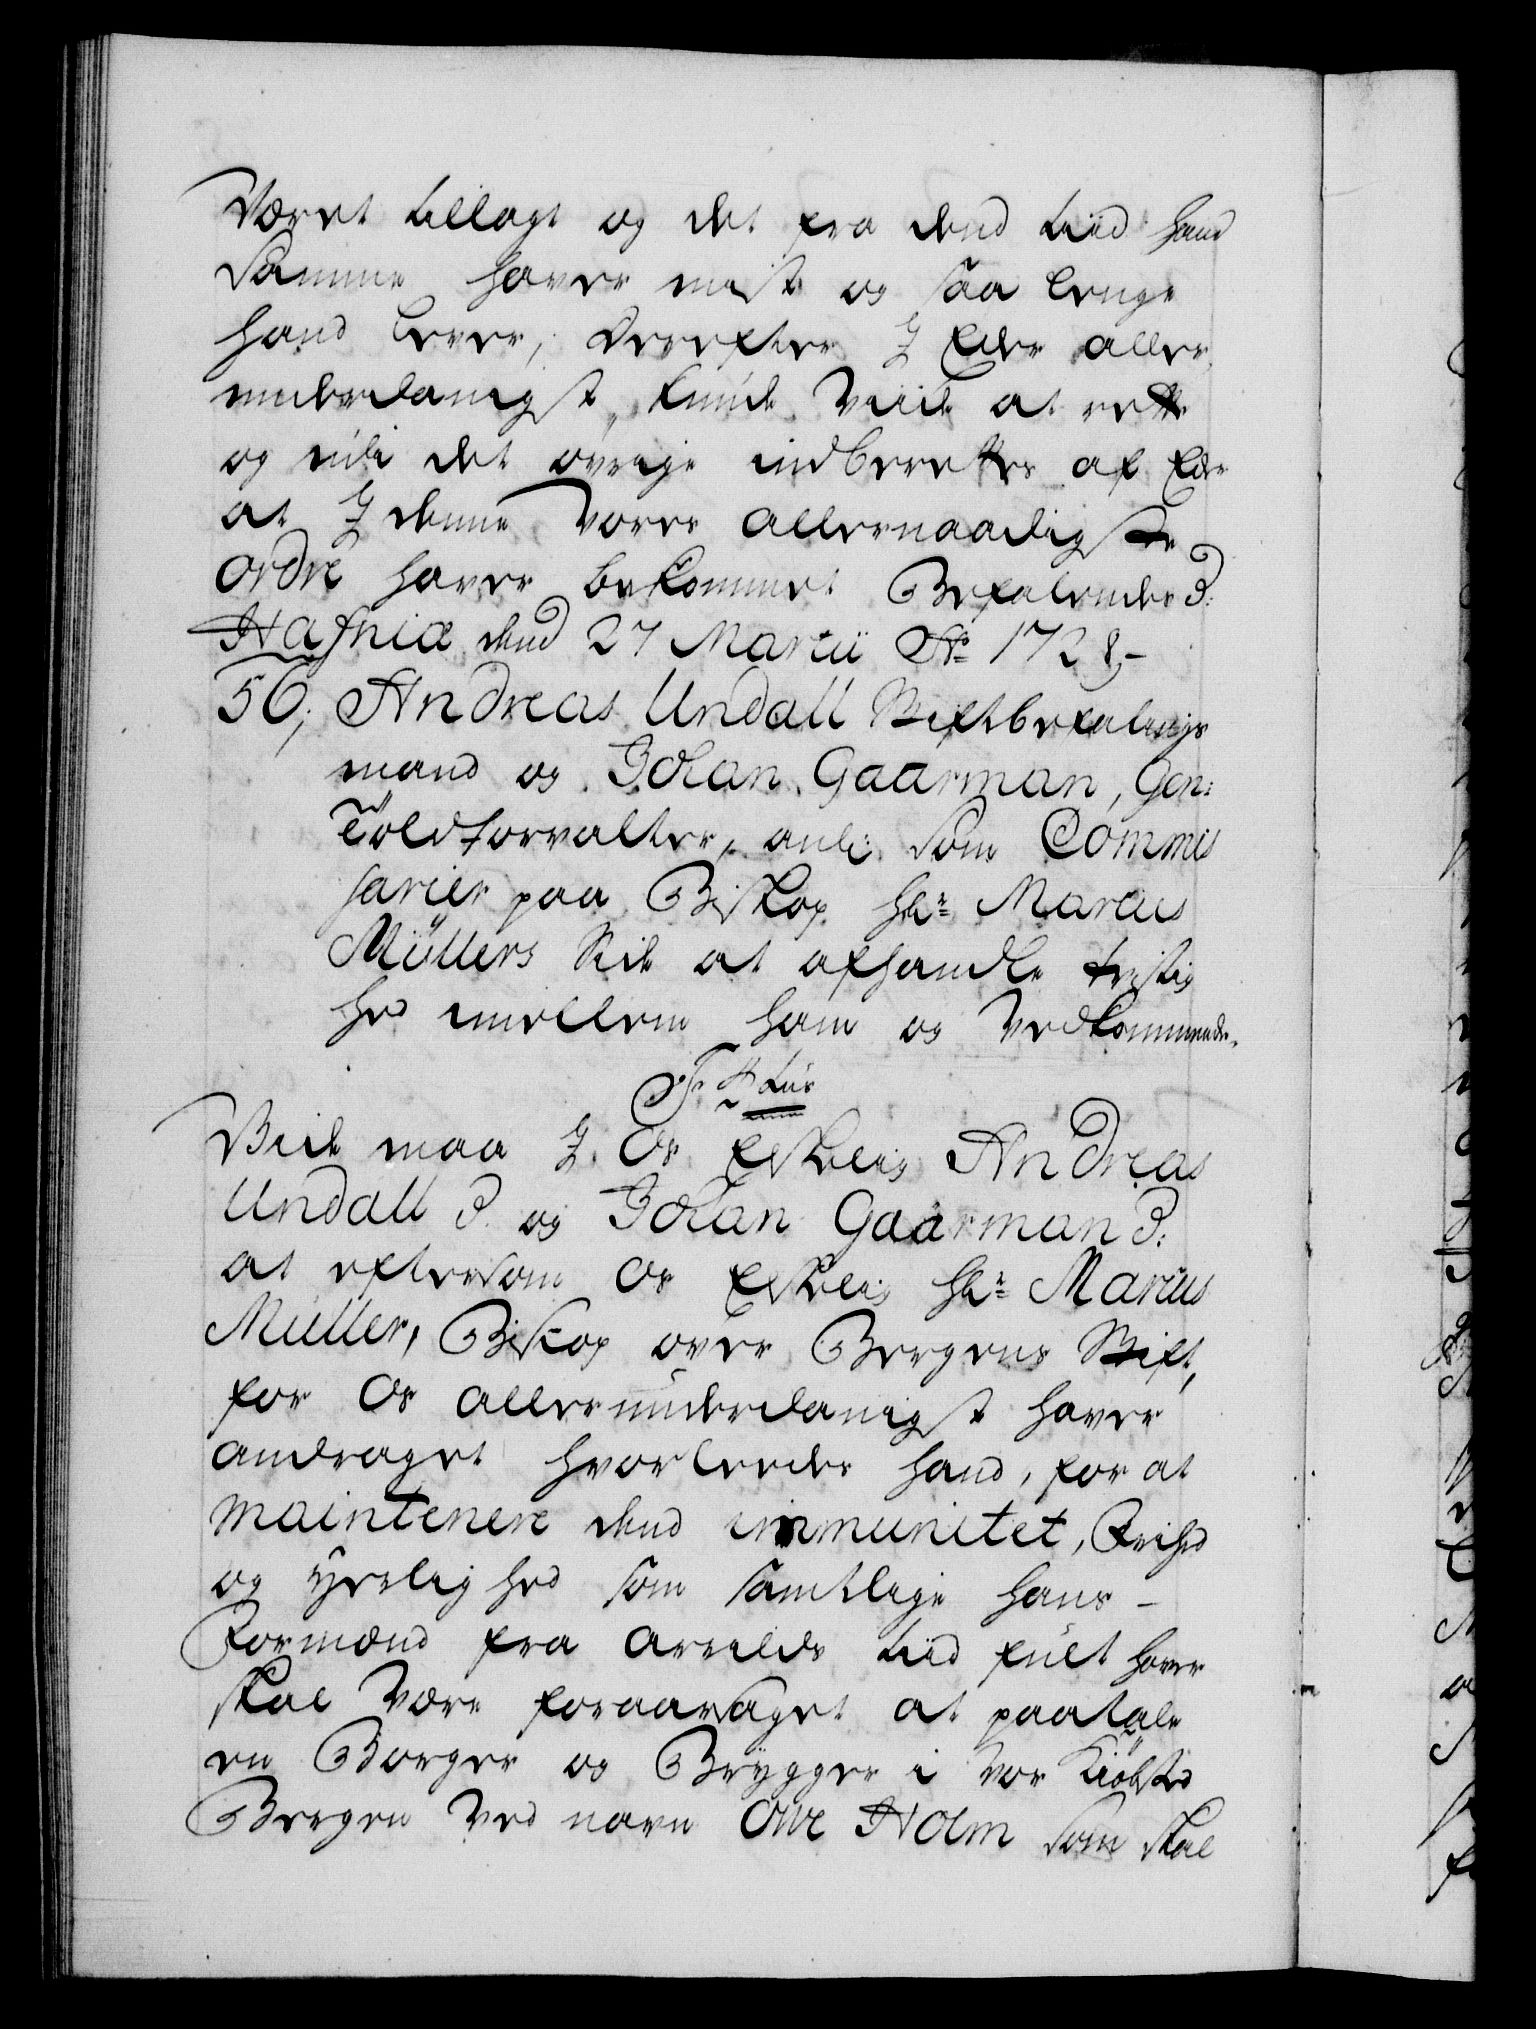 Været tillagt og det fra dend tiid hand
samme haver mist og saa lenge
hand lever, Derefter I Eder aller,
underdanigst kunde viide at rette
og udi det øvrige indberettes af Eder
at I denne Vores allernaadigste
ordre haver bekommet Befalendes P:
Hafniæ dend 27 Martii Ao 1728,-
56, Andreas Undall Stiftbefalings
mand og Johan Gaarman, Gen:
Toldforvalter, anl: som Commis
sarier paa Biskop Hr Marcus
Müllers Side at afhandle tristig
hed imellem ham og Vedkommende.
F. 4tus
Viide maa I Os Elskelig Andreas
Undall P. og Johan Gaarman P:
at eftersom Os Elskelig Hr Marcus
Müller, Biskop over Bergens Stift,
for Os allerunderdanigst haver
andraget hvorleedes hand, for at
maintenere dend immunitet, Frihed
og Herlighed som samtlige hans -
Formænd fra Arrilds tiid fult haver
skal være foraarsaget at paatale
en Borger og Brygger i vor Kiøbsted
Bergen Ved navn Ove Holm som skal